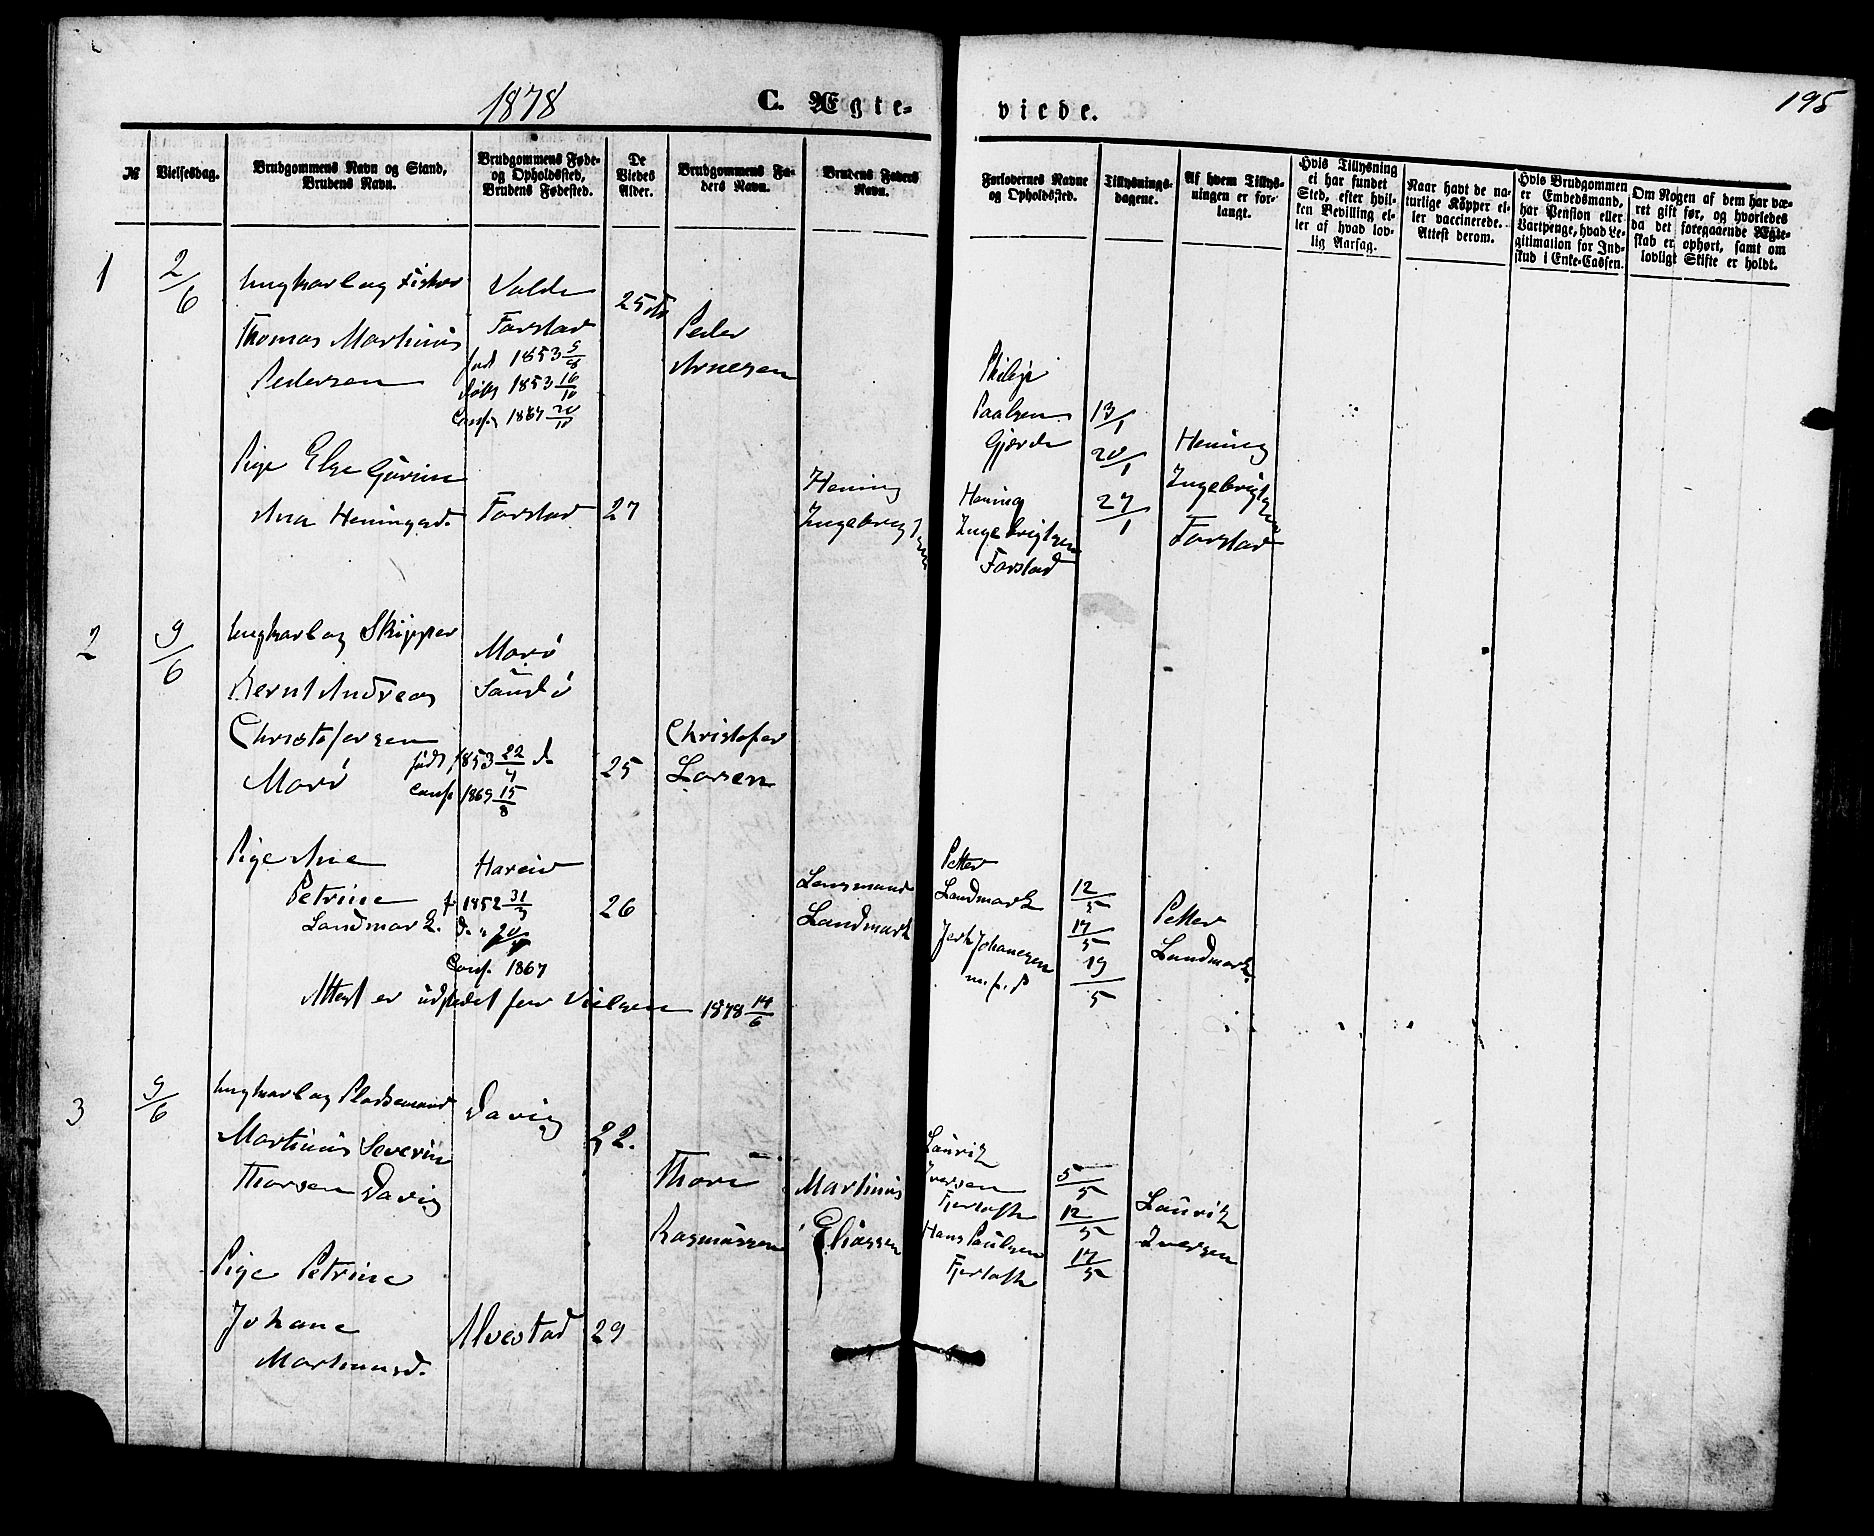 1878 C. Ægte-
viede. 195
№
Vielsesdag.
Brudgommens Navn og Stand,
Brudens Navn.
Brudgommens Føde-
og Opholdssted,
Brudens Fødested.
De
Viedes
Alder.
Brudgommens Fa-
ders Navn.
Brudens Faders
Navn.
Forlovernes Navne
og Opholdssted.
Tillysnings-
dagene.
Af hvem Tillys-
ningen er for-
langt.
Hvis Tillysning
ei har fundet
Sted, efter hvil-
ken Bevilling el-
ler af hvad lov-
lig Aarsag.
Naar havt de na-
turlige Kopper el-
ler vaccinerede.
Attest derom.
Hvis Brudgommen
er Embedsmand,
har Pension eller
Vartpenge, hvad Le-
gitimation for Ind-
skud i Enke-Cassen.
Om Nogen af dem har væ-
ret gift før, og hvorledes
da det foregaaende Ægte-
skab er ophørt, samt om
lovligt Skifte er holdt.
1
2/6
Ungkarl og Fisker
Thomas Martinus
Pedersen
Valde
Farstad
1853 5/8
1853 16/10
Conf. 1867 20/10
25
Peder
Arnesen
Pige Else Gurine
Ana Heningsd.
Farstad
27
Hening
Ingebrigtsen
Philip
Paalsen
Gjerde
Hening
Ingebrigtsen
Farstad
13/1
20/1
27/1
Hening
Ingebrigtsen
Farstad
2
9/6
Ungkarl og Skipper
Bernt Andreas
Christofersen
Morø
Morø
Sandø
født 1853 22/4
Conf. 1869 15/8
25
Christofer
Larsen
Pige Ane
Petrine
Landmark.
Hareid
f. 1852 31/3
Conf. 1867
26
Lensmand
Landmark
Petter
Landmark
Johanesen
m.f.P
12/5
17/5
19/5
Petter
Landmark.
Attest er udstedet for Vielsen 1878 14/6
3
9/6
Ungkarl og Pladsemand
Martinus Severin
Thorsen Davig
Davig
22.
Thore
Rasmussen
Pige Petrine
Johane
Martinusd.
Alvestad
29
Martinus
Eliassen
Laurik
Iversen
Fjertoft
Hans Paulsen
Fjertoft
5/5
12/5
17/5
Laurik
Iversen